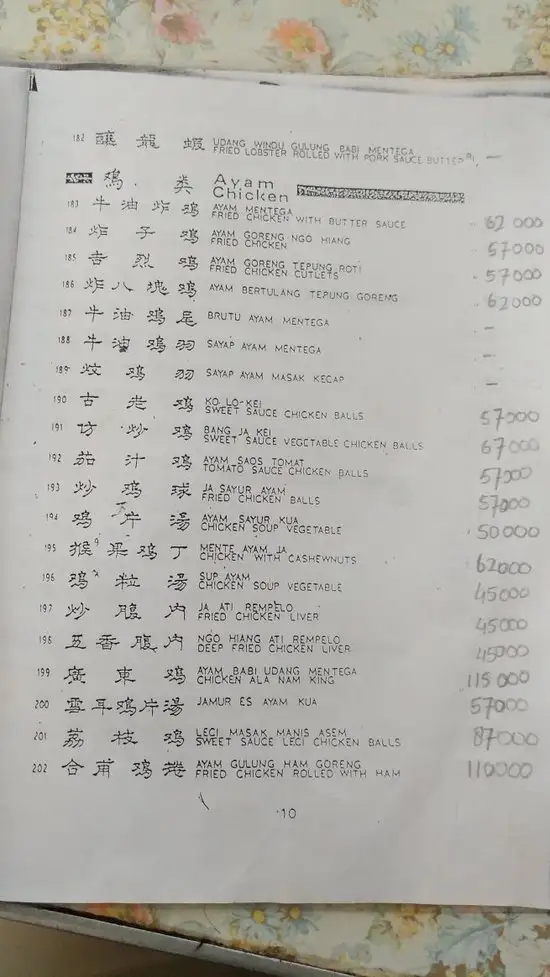 182 釀龍蝦 UDANG WINDU GULUNG BABI MENTEGA –
FRIED LOBSTER ROLLED WITH PORK SAUCE BUTTER
鸡类 Ayam
Chicken
183 牛油炸鸡 AYAM MENTEGA 62000
FRIED CHICKEN WITH BUTTER SAUCE
184 炸子鸡 AYAM GORENG NGO HIANG 57000
FRIED CHICKEN
185 吉烈鸡 AYAM GORENG TEPUNG ROTI 57000
FRIED CHICKEN CUTLETS
186 炸八塊鸡 AYAM BERTULANG TEPUNG GORENG 62000
187 牛油鸡尾 BRUTU AYAM MENTEGA –
188 牛油鸡羽 SAYAP AYAM MENTEGA –
189 炆鸡羽 SAYAP AYAM MASAK KECAP –
190 古老鸡 KO LO-KEI 57000
SWEET SAUCE CHICKEN BALLS
191 仿炒鸡 BANG JA KEI 67000
SWEET SAUCE VEGETABLE CHICKEN BALLS
192 茄汁鸡 AYAM SAOS TOMAT 57000
TOMATO SAUCE CHICKEN BALLS
193 炒鸡球 JA SAYUR AYAM 57000
FRIED CHICKEN BALLS
194 鸡片湯 AYAM SAYUR KUA 50000
CHICKEN SOUP VEGETABLE
195 猴果鸡丁 MENTE AYAM JA 62000
CHICKEN WITH CASHEWNUTS
196 鸡粒湯 SUP AYAM 45000
CHICKEN SOUP VEGETABLE
197 炒腹内 JA ATI REMPELO 45000
FRIED CHICKEN LIVER
198 五香腹内 NGO HIANG ATI REMPELO 45000
DEEP FRIED CHICKEN LIVER
199 廣東鸡 AYAM BABI UDANG MENTEGA 115000
CHICKEN ALA NAM KING
200 雪耳鸡片湯 JAMUR ES AYAM KUA 57000
201 荔枝鸡 LECI MASAK MANIS ASEM 87000
SWEET SAUCE LECI CHICKEN BALLS
202 合甫鸡捲 AYAM GULUNG HAM GORENG 110000
FRIED CHICKEN ROLLED WITH HAM
10